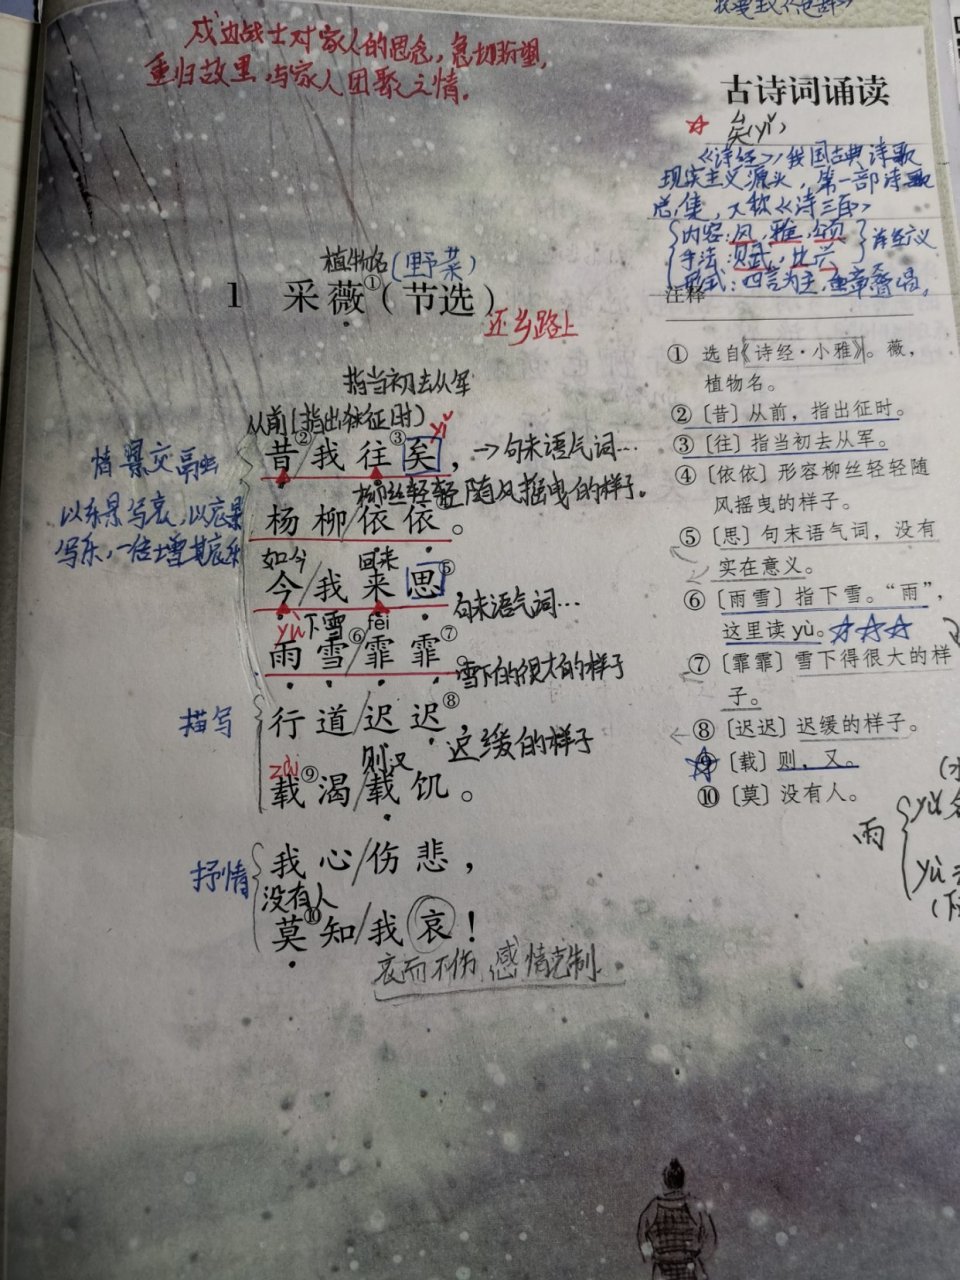 戍边战士对家人的思念，急切盼望，
重归故里，与家人团聚之情。
古诗词诵读
☆ 矣(yǐ)
《诗经》，我国古典诗歌
现实主义源头，第一部诗歌
总集，又称《诗三百》
内容：风，雅，颂 诗经六义
手法：赋，比，兴
形式：四言为主，重章叠唱，
植物名（野菜）
1 采薇①（节选）
还乡路上
指当初去从军
从前（指出征时）
yǐ
昔②/我往③矣，→句末语气词…
柳丝轻轻随风摇曳的样子。
杨柳/依依。
情景交融
以乐景写哀，以哀景
写乐，一倍增其哀乐
如今 回来
今/我来思⑤
句末语气词…
yù 下雪 fēi
雨雪⑥/霏霏⑦。
雪下的很大的样子
描写
行道/迟迟⑧，
迟缓的样子
zài 则又
载⑨渴/载饥。
抒情
我心/伤悲，
没有人
莫⑩知/我哀！
哀而不伤，感情克制
注释
① 选自《诗经·小雅》。薇，
植物名。
②〔昔〕从前，指出征时。
③〔往〕指当初去从军。
④〔依依〕形容柳丝轻轻随
风摇曳的样子。
⑤〔思〕句末语气词，没有
实在意义。
⑥〔雨雪〕指下雪。“雨”，
这里读yù。☆☆☆
⑦〔霏霏〕雪下得很大的样
子。
⑧〔迟迟〕迟缓的样子。
⑨〔载〕则，又。
⑩〔莫〕没有人。
雨
yǔ
yù